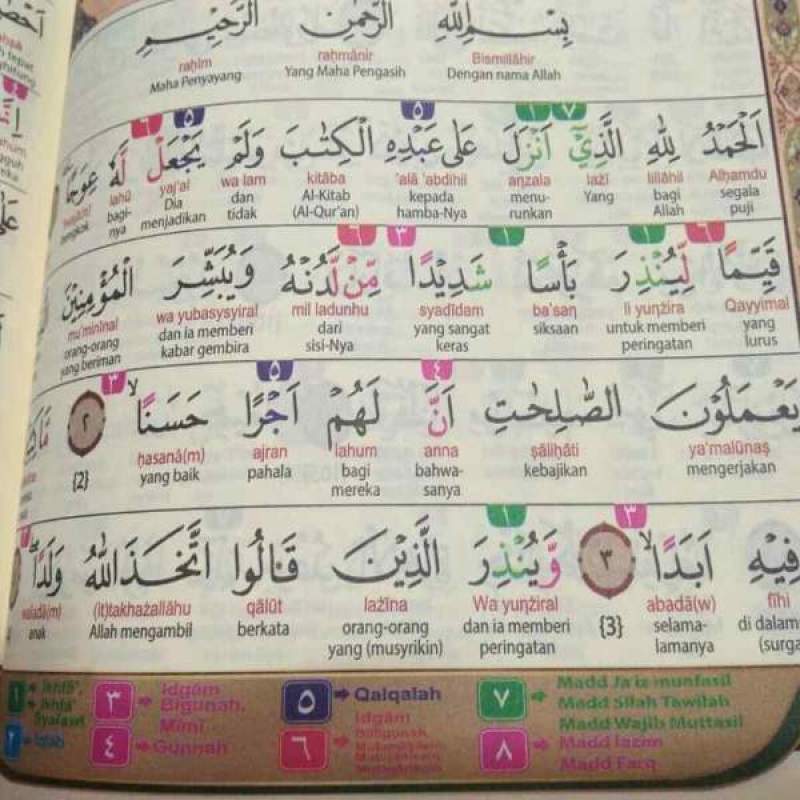 بِسْمِ اللّٰهِ الرَّحْمٰنِ الرَّحِيْمِ
Bismillāhir raḥmānir raḥīm
Dengan nama Allah Yang Maha Pengasih Maha Penyayang
٧ ١ ٥ ٥ ٦
اَلْحَمْدُ لِلّٰهِ الَّذِيْٓ اَنْزَلَ عَلٰى عَبْدِهِ الْكِتٰبَ وَلَمْ يَجْعَلْ لَّهٗ عِوَجًا
Alḥamdu lillāhil lażī anzala 'alā 'abdihil kitāba wa lam yaj'al lahū
segala puji bagi Allah Yang menu-runkan kepada hamba-Nya Al-Kitab (Al-Qur'an) dan tidak Dia menjadikan bagi-nya bengkok
٦ ١ ١ ٣ ٦
قَيِّمًا لِّيُنْذِرَ بَأْسًا شَدِيْدًا مِّنْ لَّدُنْهُ وَيُبَشِّرَ الْمُؤْمِنِيْنَ
Qayyimal li yunżira ba'san syadīdam mil ladunhu wa yubasysyiral mu'minīnal
yang lurus untuk memberi peringatan siksaan yang sangat keras dari sisi-Nya dan ia memberi kabar gembira orang-orang yang beriman
٤ ٥ ٣
يَعْمَلُوْنَ الصّٰلِحٰتِ اَنَّ لَهُمْ اَجْرًا حَسَنًاۙ ٢
ya'malūnaṣ ṣāliḥāti anna lahum ajran ḥasanā(m)
mengerjakan kebajikan bahwa-sanya bagi mereka pahala yang baik {2}
٣ ١
فِيْهِ اَبَدًاۙ ٣ وَّيُنْذِرَ الَّذِيْنَ قَالُوا اتَّخَذَ اللّٰهُ وَلَدًا
fīhi abadā(w) Wa yunżiral lażīna qālut (it)takhażallāhu waladā(m)
di dalam (surga selama-lamanya {3} dan ia memberi peringatan orang-orang yang (musyrikin) berkata Allah mengambil anak
١ Ikhfā',
٣ Idgām Bigunah, Mimī
٥ Qalqalah
٧ Madd Ja'iz munfasil
Madd Silah Tawilah
Madd Wajib Muttasil
٤ Gunnah
٦ Idgām Bilāgunah
٨ Madd lazim
Madd Farq